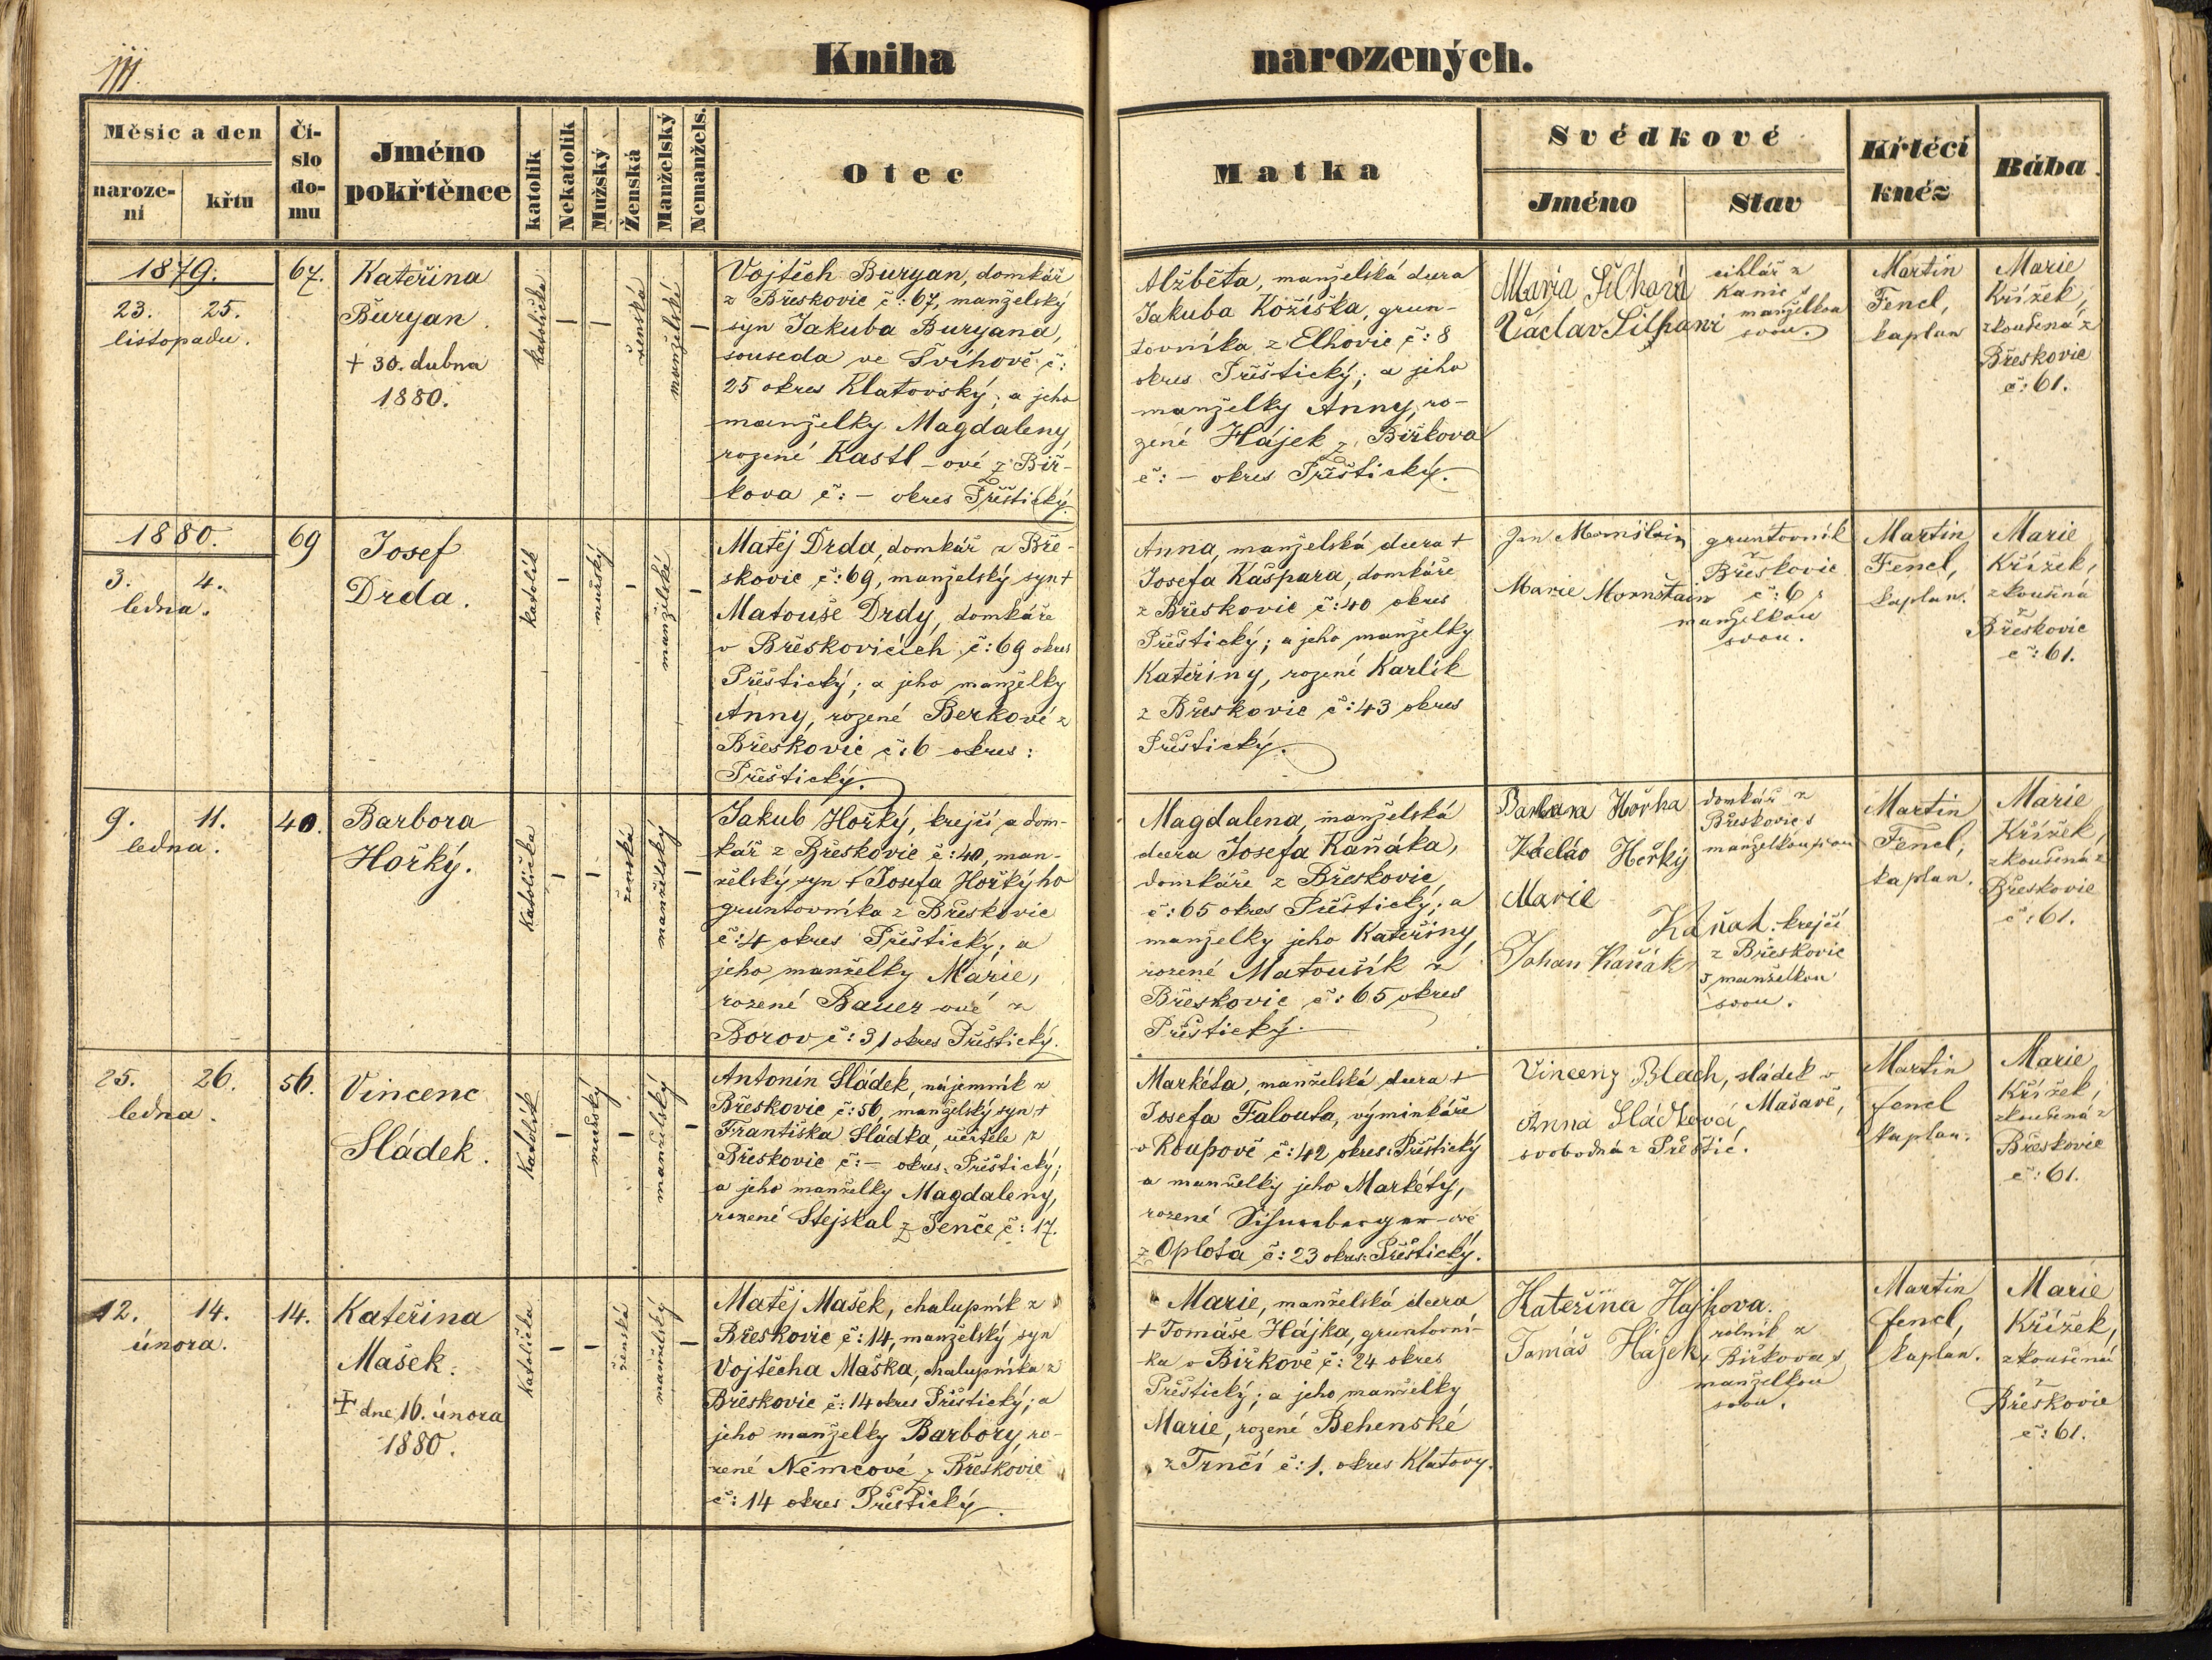 111.
Kniha narozených.
Měsíc a den
naroze-
ní
křtu
Čí-
slo
do-
mu
Jméno
pokřtěnce
katolík
Nekatolík
Mužský
Ženská
Manželský
Nemanžels.
Otec
Matka
Svědkové
Jméno
Stav
Křtěcí
kněz
Bába
1879.
23. 25.
listopadu.
67.
Kateřina
Buryan.
+ 30. dubna
1880.
katolička
—
—
ženská
manželské
—
Vojtěch Buryan, domkář
z Břeskovic č: 67, manželský
syn Jakuba Buryana,
souseda ve Švihově č:
25 okres Klatovský; a jeho
manželky Magdaleny,
rozené Kastl-ové z Bír-
kova č: – okres Přeštický.
Alžběta, manželská dcera
Jakuba Kožíška, grun-
tovníka z Elhovic č: 8
okres Přeštický; a jeho
manželky Anny, ro-
zené Hájek z Birkova
č: – okres Přeštický.
Maria Silhavá
Václav Silhani
cihlář z
Kanic s
manželkou
svou.
Martin
Fencl,
kaplan
Marie
Křížek,
zkoušená z
Břeskovic
č: 61.
1880.
3. 4.
ledna.
69
Josef
Drda.
katolík
—
mužský
—
manželské
—
Matěj Drda, domkář z Bře-
skovic č: 69, manželský syn +
Matouše Drdy, domkáře
v Břeskovicích č: 69 okres
Přeštický; a jeho manželky
Anny, rozené Berkové z
Břeskovic č: 6 okres:
Přeštický.
Anna, manželská dcera +
Josefa Kašpara, domkáře
z Břeskovic č: 40 okres
Přeštický; a jeho manželky
Kateřiny, rozené Karlík
z Břeskovic č: 43 okres
Přeštický.
Jan Mornštain
Marie Mornštain
gruntovník
z
Břeskovic
č: 6 s
manželkou
svou.
Martin
Fencl,
kaplan.
Marie
Křížek,
zkoušená
z
Břeskovic
č: 61.
9. 11.
ledna.
40.
Barbora
Hořký.
katolička
—
—
ženská
manželský
—
Jakub Hořký, krejčí a dom-
kář z Břeskovic č: 40, man-
želský syn + Josefa Hořkýho
gruntovníka z Břeskovic
č: 4 okres Přeštický; a
jeho manželky Marie,
rozené Bauer-ové z
Borov č: 31 okres Přeštický.
Magdalena, manželská
dcera Josefa Kaňáka,
domkáře z Břeskovic
č: 65 okres Přeštický; a
manželky jeho Kateřiny,
rozené Matoušík z
Břeskovic č: 65 okres
Přeštický.
Barbara Hořka
Václav Hořký
Marie
Kaňak
Johan Kaňák
domkář z
Břeskovic s
manželkou svou
krejčí
z Břeskovic
s manželkou
svou.
Martin
Fencl,
kaplan.
Marie
Křížek,
zkoušená z
Břeskovic
č: 61.
25. 26.
ledna.
56.
Vincenc
Sládek.
katolík
—
mužský
—
manželský
—
Antonín Sládek, nájemník z
Břeskovic č: 56, manželský syn +
Františka Sládka, učitele z
Břeskovic č: – okres: Přeštický;
a jeho manželky Magdaleny,
rozené Stejskal z Jenče č: 17.
Markéta, manželská dcera +
Josefa Falouta, výminkáře
v Roupově č: 42 okres: Přeštický
a manželky jeho Markéty,
rozené Schneeberger-ové
z Oplota č: 23 okres: Přeštický.
Vincenz Blach, sládek v
Mašavě,
Anna Sládková,
svobodná z Přeštic.
Martin
Fencl
kaplan.
Marie
Křížek,
zkoušená z
Břeskovic
č: 61.
12. 14.
února.
14.
Kateřina
Mašek.
+ dne 16. února
1880.
katolička
—
—
ženská
manželský
—
Matěj Mašek, chalupník z
Břeskovic č: 14, manželský syn
Vojtěcha Maška, chalupníka z
Břeskovic č: 14 okres Přeštický; a
jeho manželky Barbory, ro-
zené Němcové z Břeskovic
č: 14 okres Přeštický.
Marie, manželská dcera
+ Tomáše Hájka, gruntovní-
ka v Birkově č: 24 okres
Přeštický; a jeho manželky
Marie, rozené Behenské
z Trnčí č: 1. okres Klatovy.
Kateřina Hajkova.
Tomáš Hájek,
rolník z
Birkova s
manželkou
svou.
Martin
Fencl,
kaplan.
Marie
Křížek,
zkoušená
z
Břeskovic
č: 61.